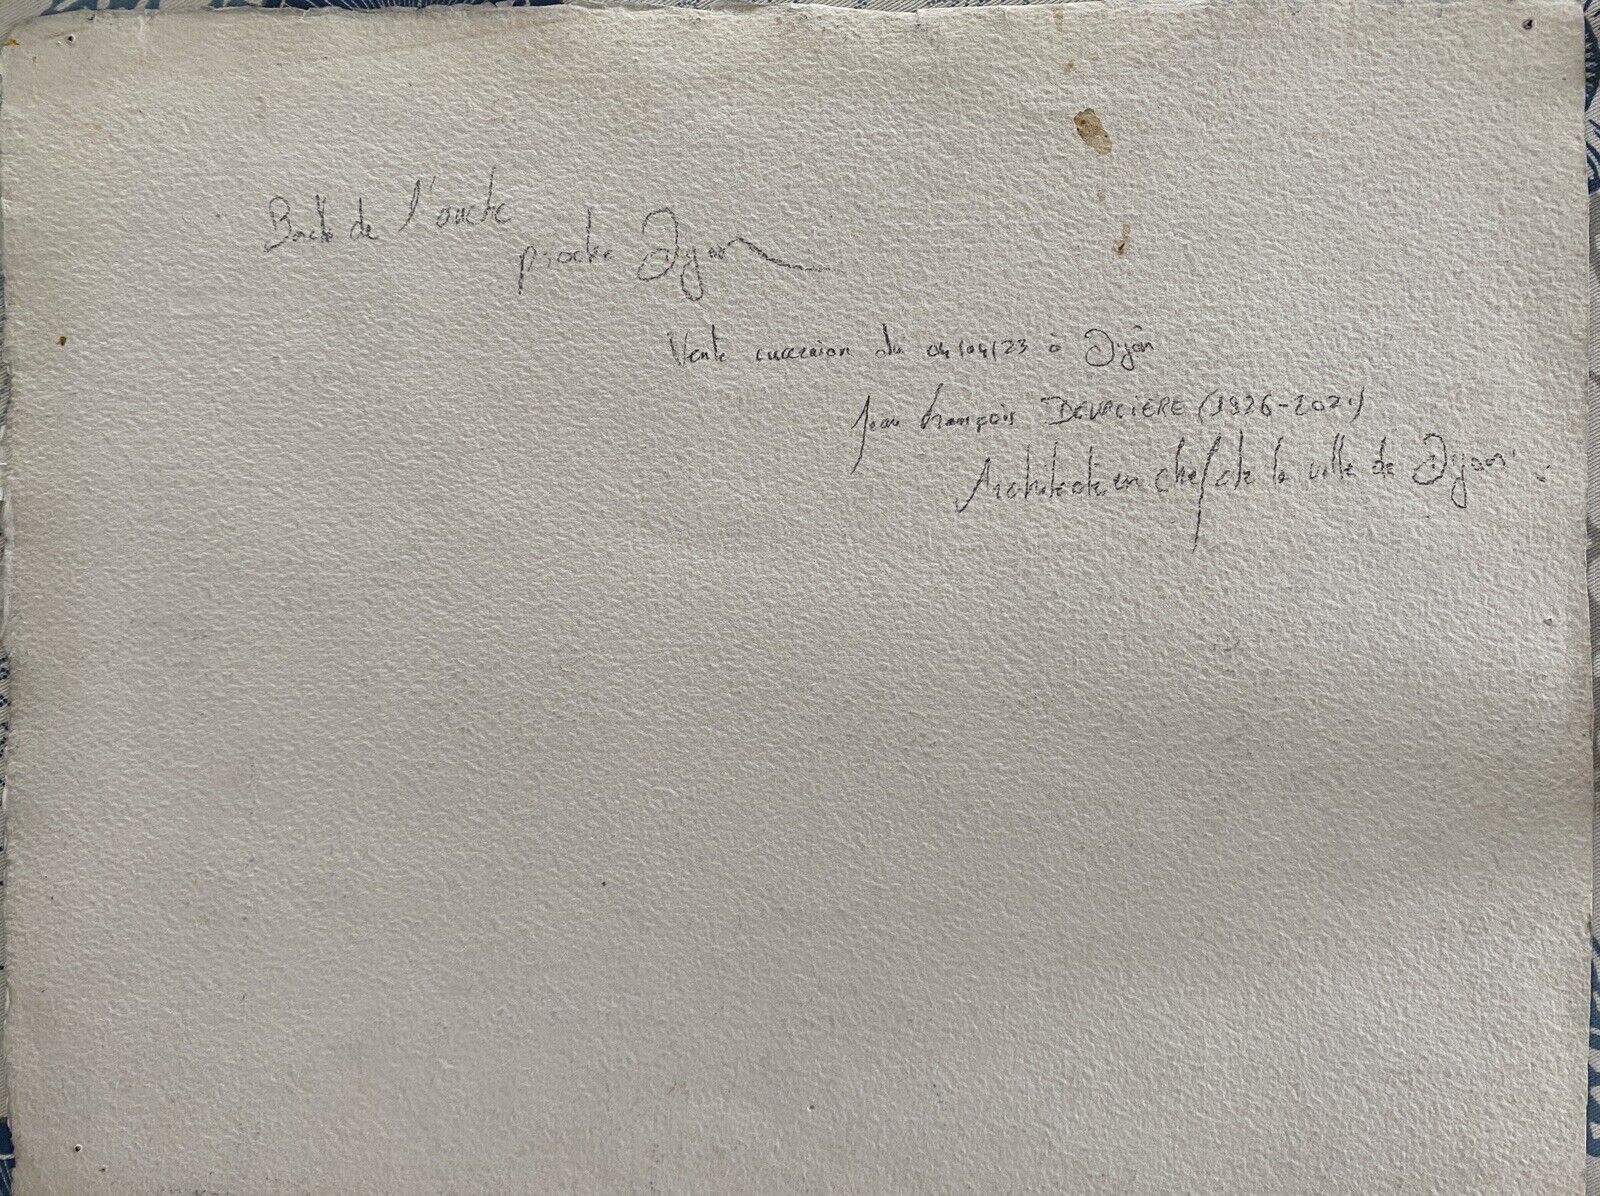 Bords de l'ouche
proche Dijon
Vente succession du 04/04/23 à Dijon
Jean François DEVALIERE (1926-2021)
Architecte en chef de la ville de Dijon.